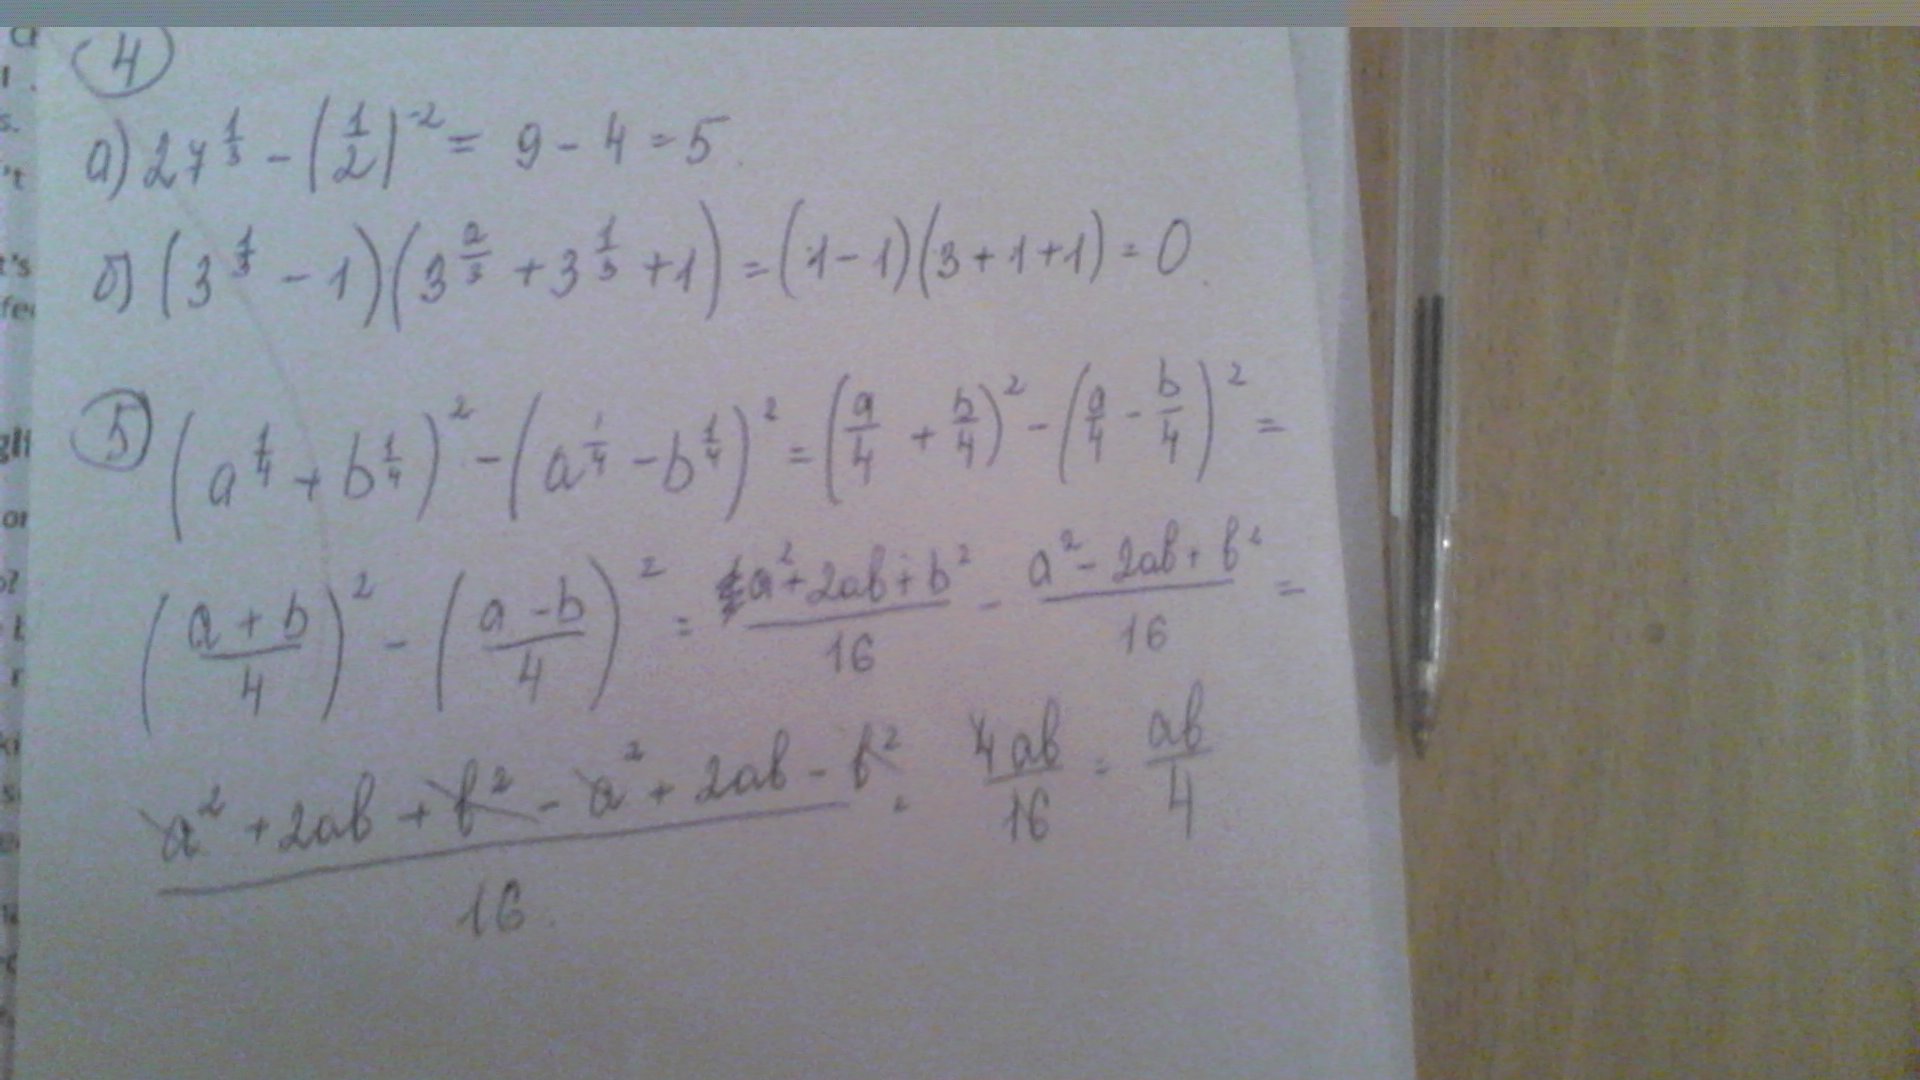 4
а) 27^{1/3} - (1/2)^{-2} = 9 - 4 = 5.
б) (3^{1/3} - 1)(3^{2/3} + 3^{1/3} + 1) = (1 - 1)(3 + 1 + 1) = 0.
5 (a^{1/4} + b^{1/4})^2 - (a^{1/4} - b^{1/4})^2 = (a/4 + b/4)^2 - (a/4 - b/4)^2 =
((a + b)/4)^2 - ((a - b)/4)^2 = (a^2 + 2ab + b^2)/16 - (a^2 - 2ab + b^2)/16 =
(a^2 + 2ab + b^2 - a^2 + 2ab - b^2)/16 = 4ab/16 = ab/4